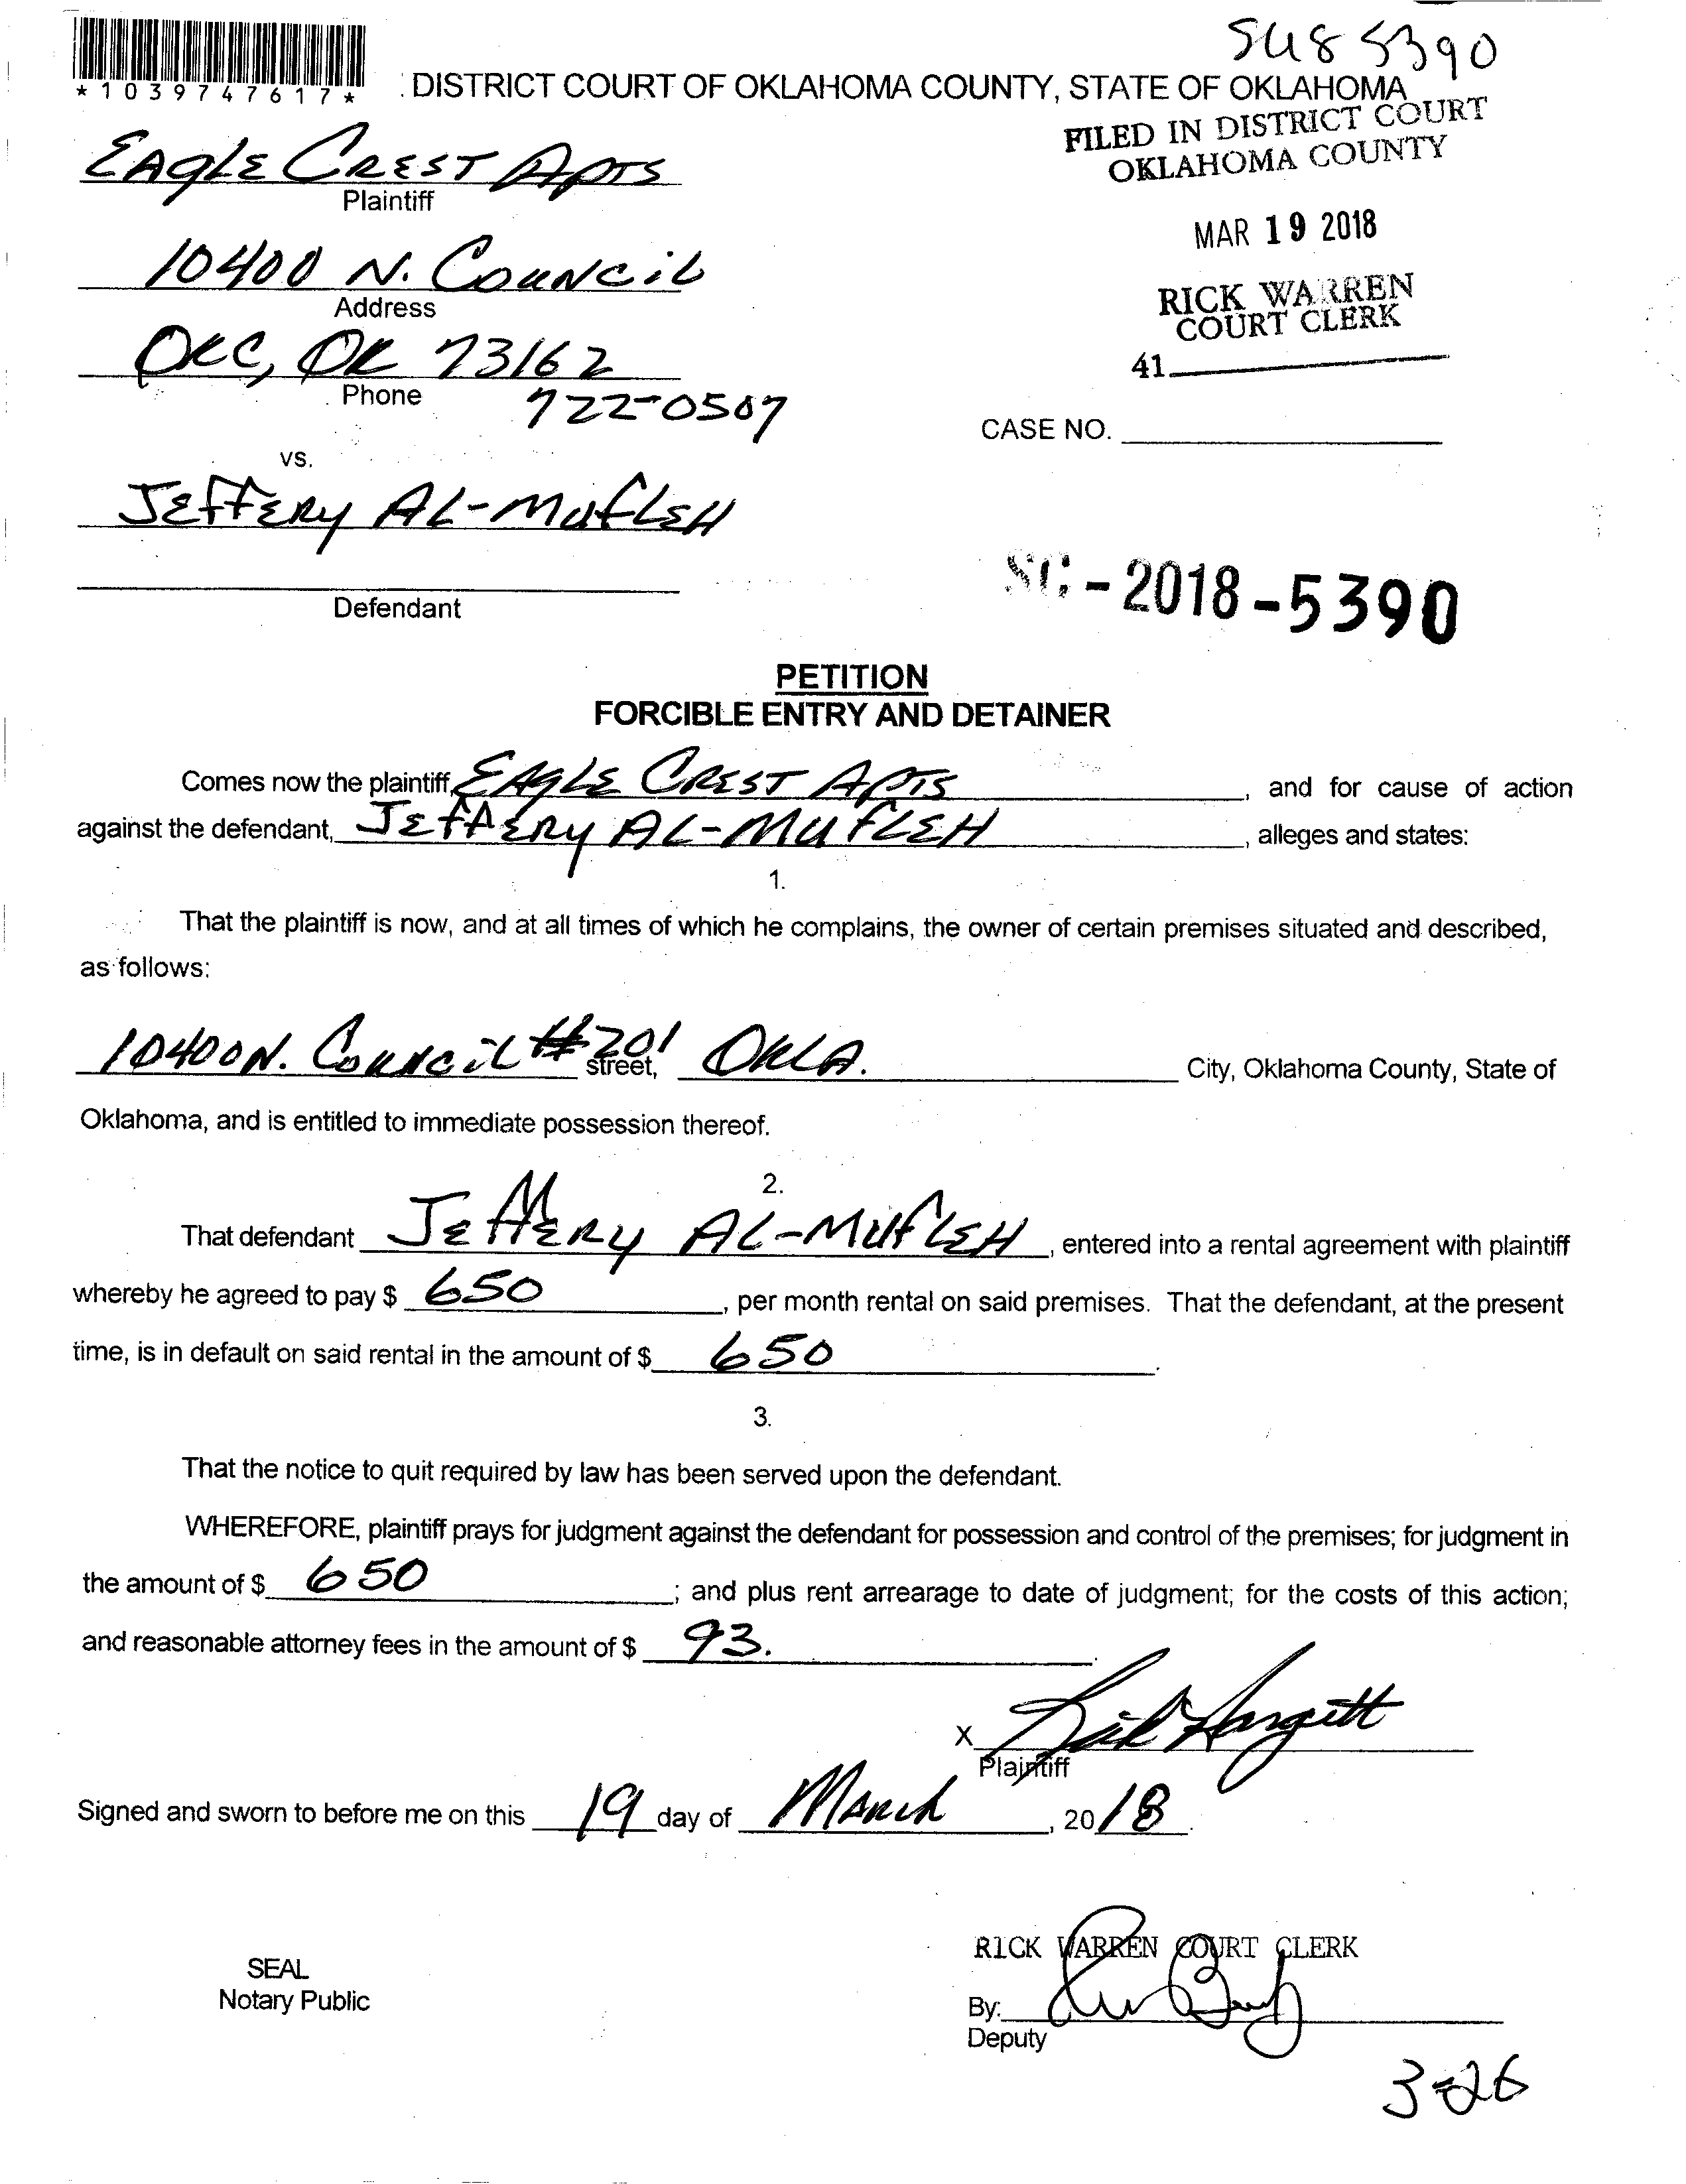 SC18 5390
*1039747617*
DISTRICT COURT OF OKLAHOMA COUNTY, STATE OF OKLAHOMA
FILED IN DISTRICT COURT
OKLAHOMA COUNTY
EAGLE CREST APTS
Plaintiff
MAR 19 2018
10400 N. COUNCIL
Address
RICK WARREN
COURT CLERK
OKC, OK 73162
41
Phone
722-0507
CASE NO.
vs.
JEFFERY AL-MUFLEH
Defendant
SC-2018-5390
PETITION
FORCIBLE ENTRY AND DETAINER
Comes now the plaintiff, EAGLE CREST APTS, and for cause of action
against the defendant, JEFFERY AL-MUFLEH, alleges and states:
1.
That the plaintiff is now, and at all times of which he complains, the owner of certain premises situated and described,
as follows:
10400 N. COUNCIL #201 street, OKLA. City, Oklahoma County, State of
Oklahoma, and is entitled to immediate possession thereof.
2.
That defendant JEFFERY AL-MUFLEH, entered into a rental agreement with plaintiff
whereby he agreed to pay $ 650, per month rental on said premises. That the defendant, at the present
time, is in default on said rental in the amount of $ 650.
3.
That the notice to quit required by law has been served upon the defendant.
WHEREFORE, plaintiff prays for judgment against the defendant for possession and control of the premises; for judgment in
the amount of $ 650; and plus rent arrearage to date of judgment; for the costs of this action;
and reasonable attorney fees in the amount of $ 93.
X Rick Hargett
Plaintiff
Signed and sworn to before me on this 19 day of MARCH, 2018.
RICK WARREN COURT CLERK
SEAL
Notary Public
By:
Deputy
3-26